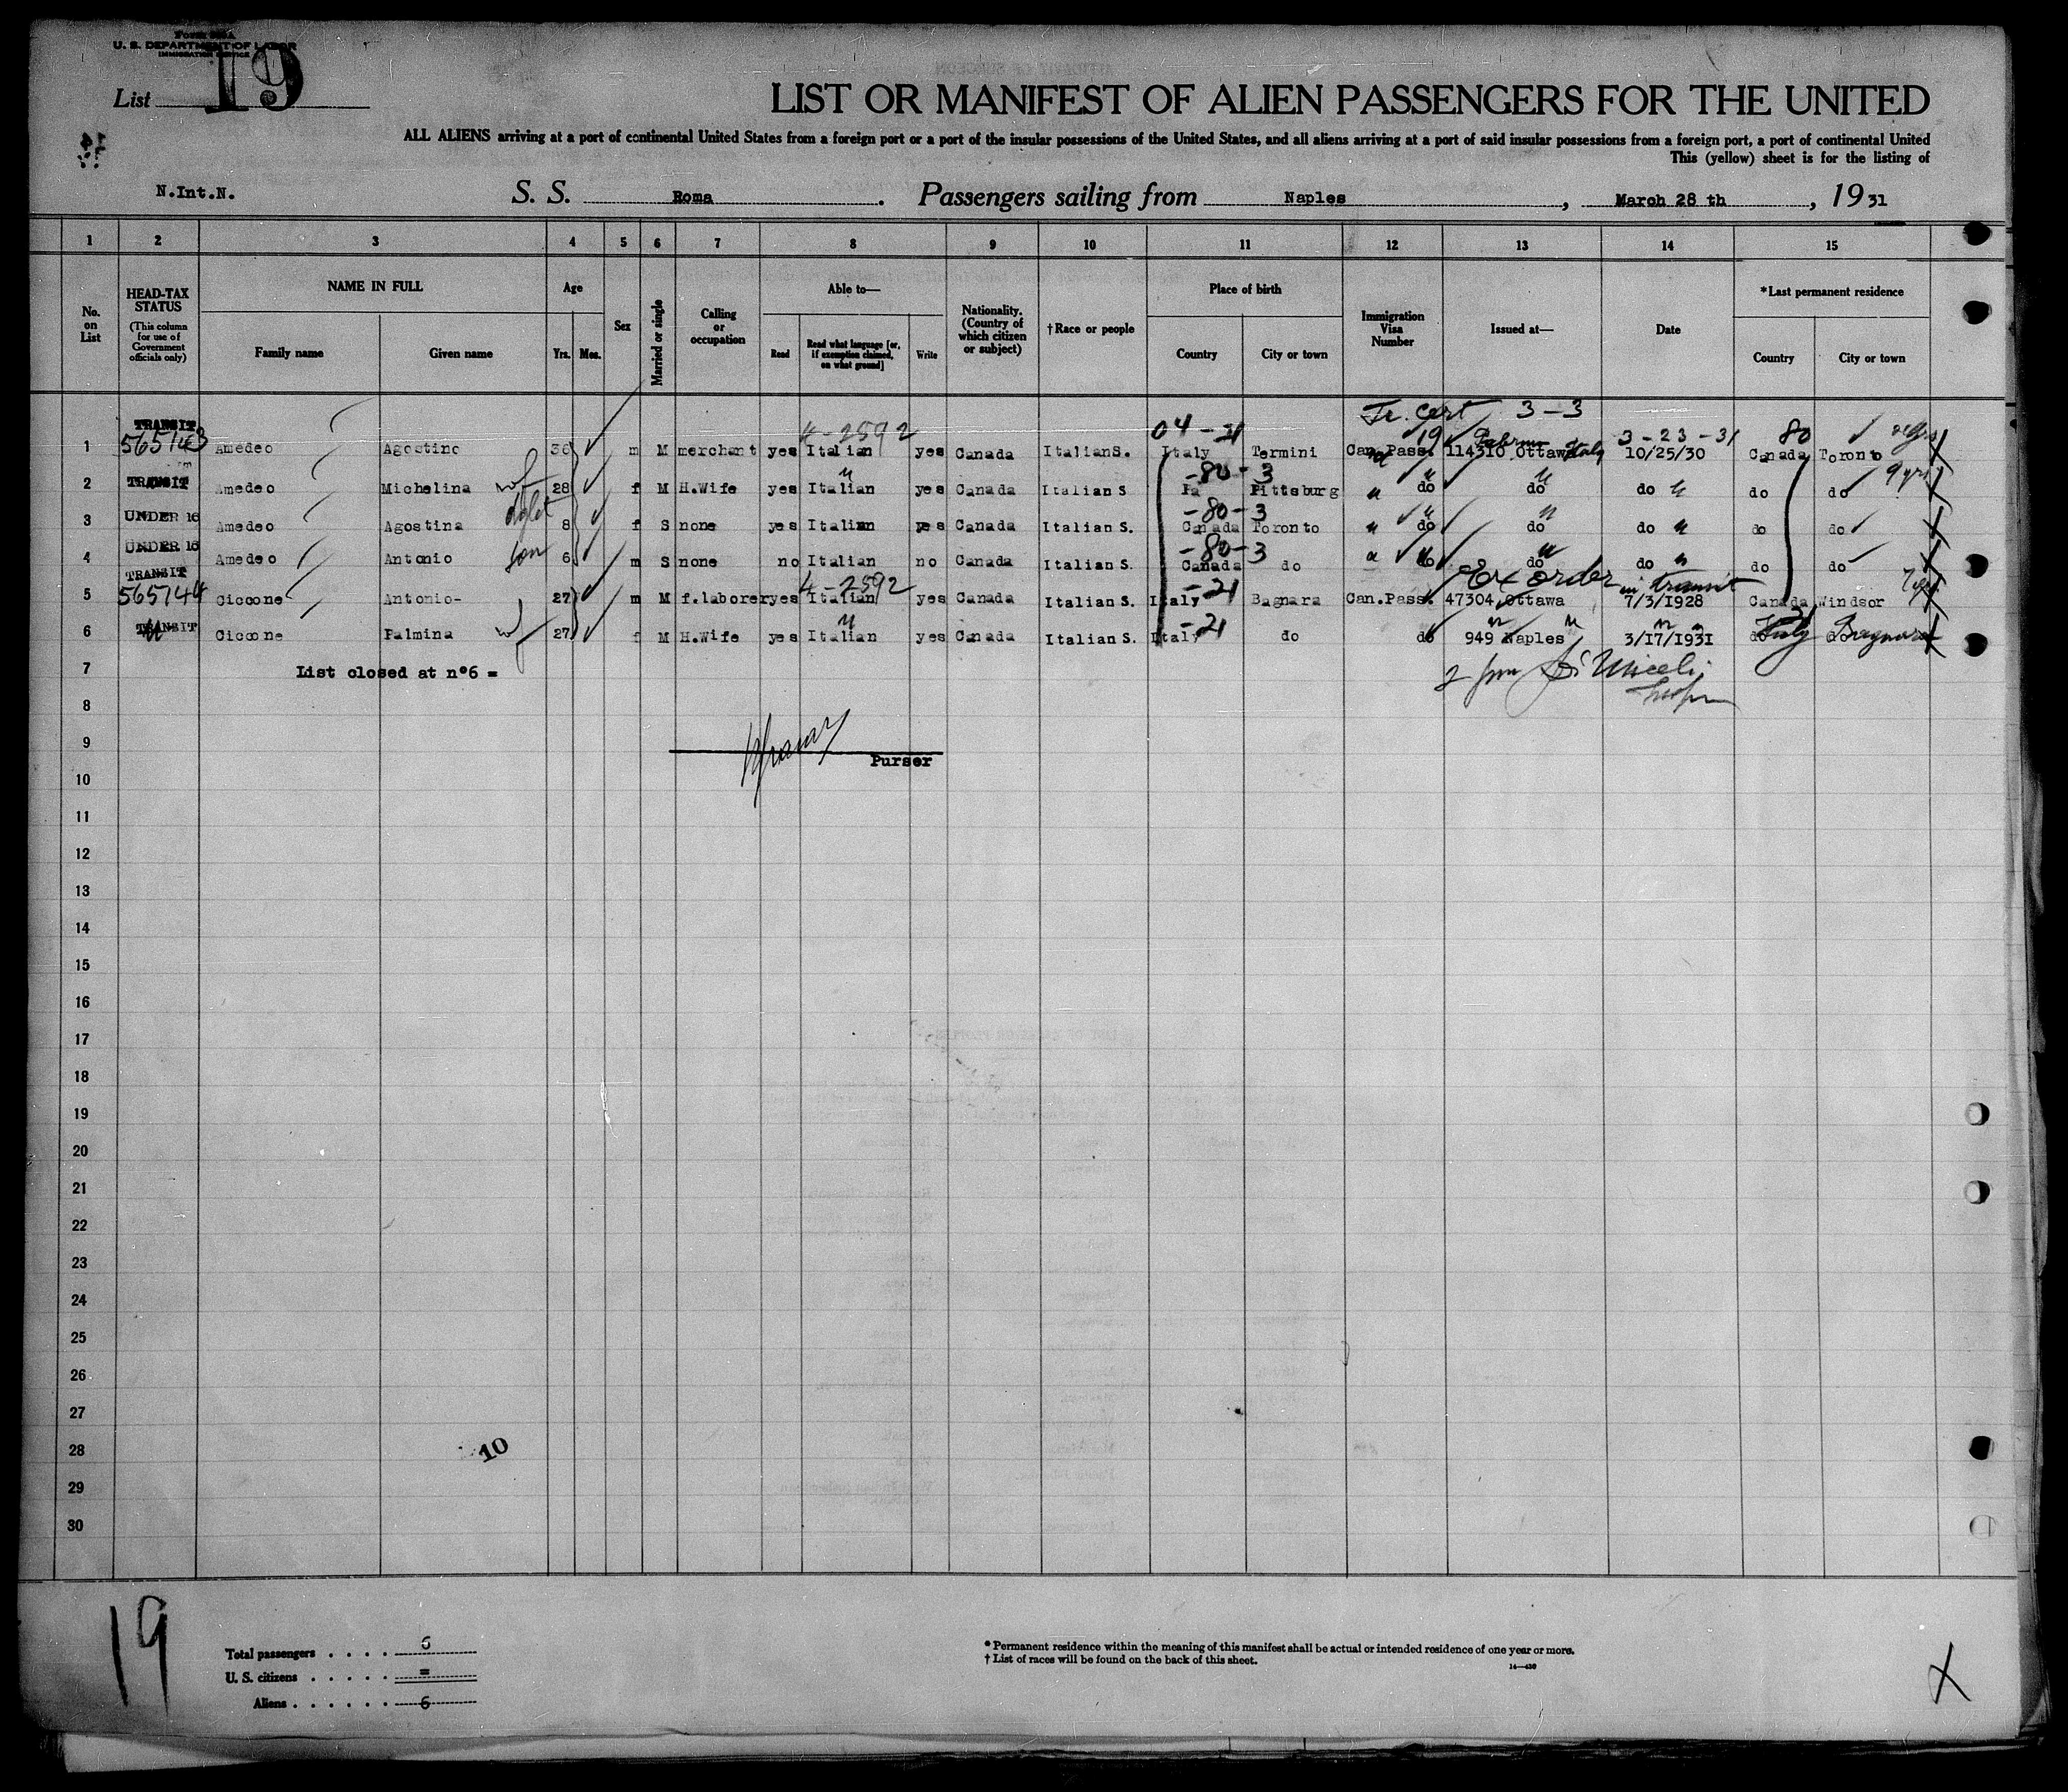 U. S. DEPARTMENT OF LABOR
IMMIGRATION SERVICE
List 19
LIST OR MANIFEST OF ALIEN PASSENGERS FOR THE UNITED
ALL ALIENS arriving at a port of continental United States from a foreign port or a port of the insular possessions of the United States, and all aliens arriving at a port of said insular possessions from a foreign port, a port of continental United
This (yellow) sheet is for the listing of
N.Int.N. S. S. Roma. Passengers sailing from Naples, March 28 th, 19 31
1 2 3 4 5 6 7 8 9 10 11 12 13 14 15
No. on List
HEAD-TAX STATUS
(This column for use of Government officials only)
NAME IN FULL
Family name Given name
Age
Yrs. Mos.
Sex
Married or single
Calling or occupation
Able to—
Read
Read what language [or, if exemption claimed, on what ground]
Write
Nationality. (Country of which citizen or subject)
†Race or people
Place of birth
Country City or town
Immigration Visa Number
Issued at—
Date
*Last permanent residence
Country City or town
Tr. Cert 3-3
TRANSIT 4-2592 04-21 19 3-23-31 80
1 565143 Amedeo Agostino 36 m M merchant yes Italian yes Canada Italian S. Italy Termini Can. Pass. 114310 Ottawa Italy 10/25/30 Canada Toronto
-80-3 9 yrs
2 TRANSIT Amedeo Michelina wf 28 f M H.Wife yes Italian yes Canada Italian S Pa Pittsburg " do do do do do
-80-3
3 UNDER 16 Amedeo Agostina 8 f S none yes Italian yes Canada Italian S. Canada Toronto " do do do do do
-80-3
4 UNDER 16 Amedeo Antonio son 6 m S none no Italian no Canada Italian S. Canada do do do do do
TRANSIT 4-2592 -21 Ex order in transit
5 565144 Ciccone Antonio- 27 m M f.laborer yes Italian yes Canada Italian S. Italy Bagnara Can.Pass. 47304 Ottawa 7/3/1928 Canada Windsor
-21
6 TRANSIT Ciccone Palmina wf 27 f M H.Wife yes Italian yes Canada Italian S. Italy do do 949 Naples 3/17/1931 do Italy do Bagnara
7 List closed at n°6 =
8
9
Purser
10
11
12
13
14
15
16
17
18
19
20
21
22
23
24
25
26
27
28 10
29
30
19
Total passengers . . . . 6
U. S. citizens . . . . . =
Aliens . . . . . . 6
* Permanent residence within the meaning of this manifest shall be actual or intended residence of one year or more.
† List of races will be found on the back of this sheet.
X